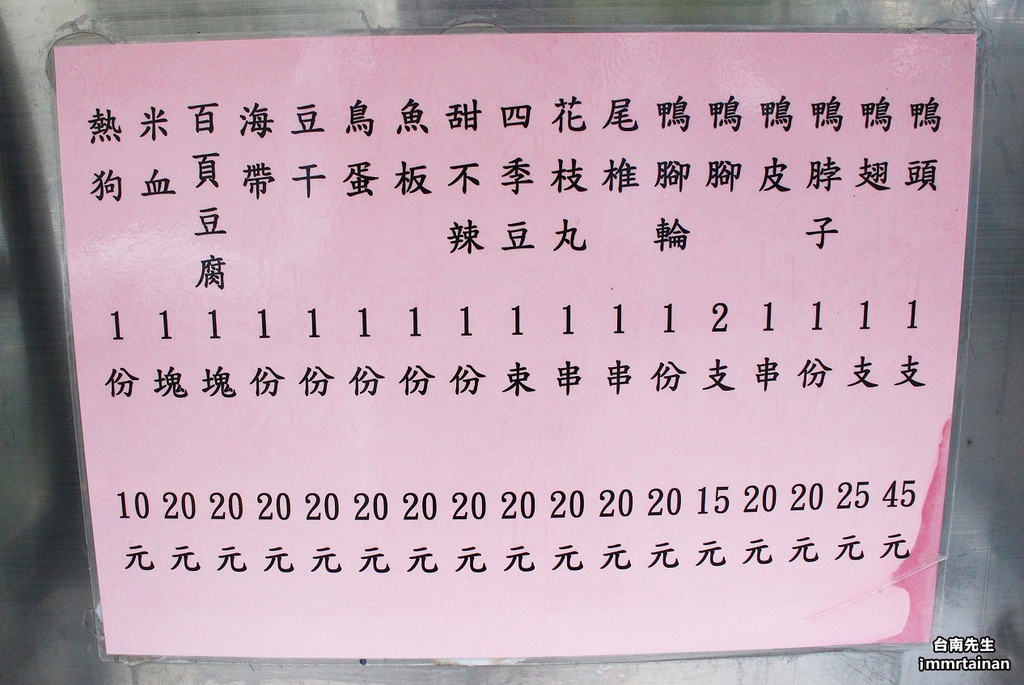 鴨頭 1支 45元
鴨翅 1支 25元
鴨脖子 1份 20元
鴨皮 1串 20元
鴨腳 2支 15元
鴨腳輪 1份 20元
尾椎 1串 20元
花枝丸 1串 20元
四季豆 1束 20元
甜不辣 1份 20元
魚板 1份 20元
鳥蛋 1份 20元
豆干 1份 20元
海帶 1份 20元
百頁豆腐 1塊 20元
米血 1塊 20元
熱狗 1份 10元
台南先生
immrtainan